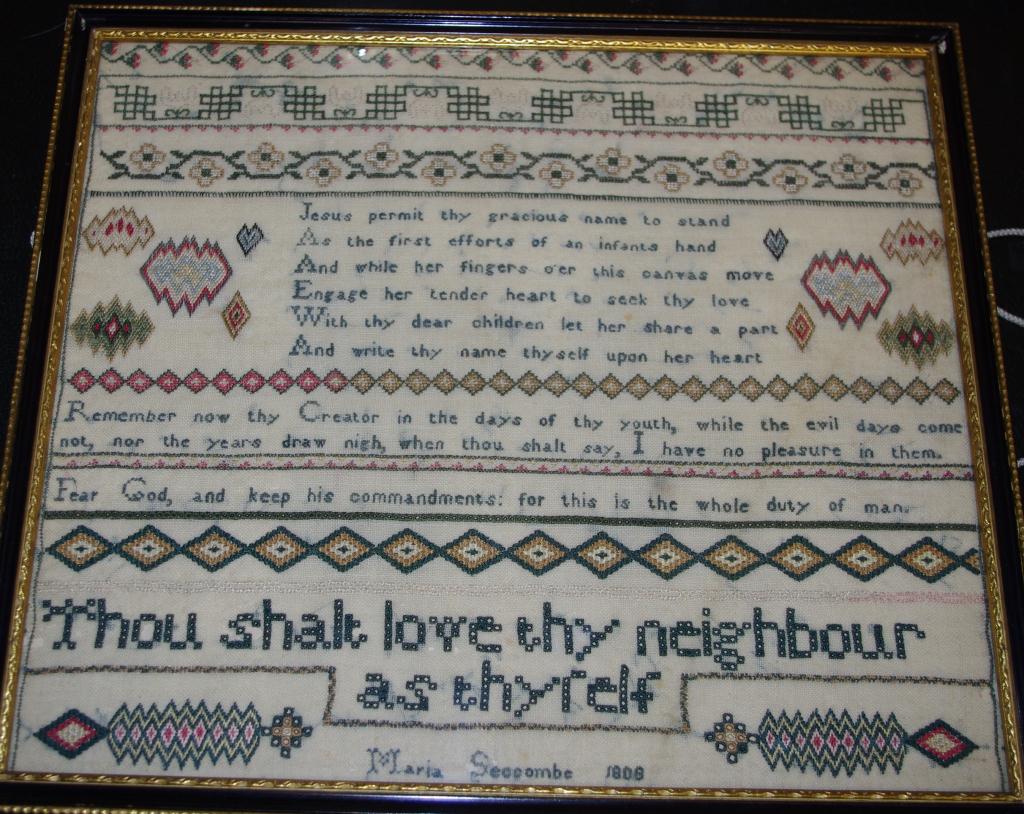 Jesus permit thy gracious name to stand
As the first efforts of an infants hand
And while her fingers o'er this canvas move
Engage her tender heart to seek thy love
With thy dear children let her share a part
And write thy name thyself upon her heart
Remember now thy Creator in the days of thy youth, while the evil days come
not, nor the years draw nigh, when thou shalt say, I have no pleasure in them.
Fear God, and keep his commandments: for this is the whole duty of man.
Thou shalt love thy neighbour
as thyſelf
Maria Seccombe 1808